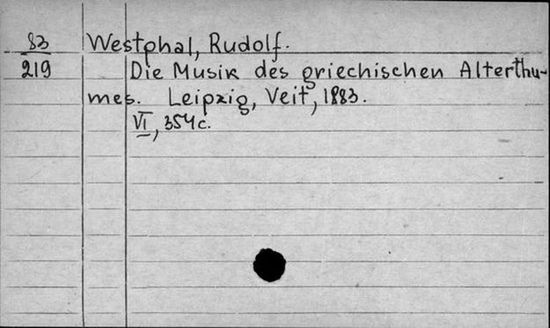 83 Westphal, Rudolf.
219 Die Musik des griechischen Alterthu-
mes. Leipzig, Veit, 1883.
VI, 354 c.